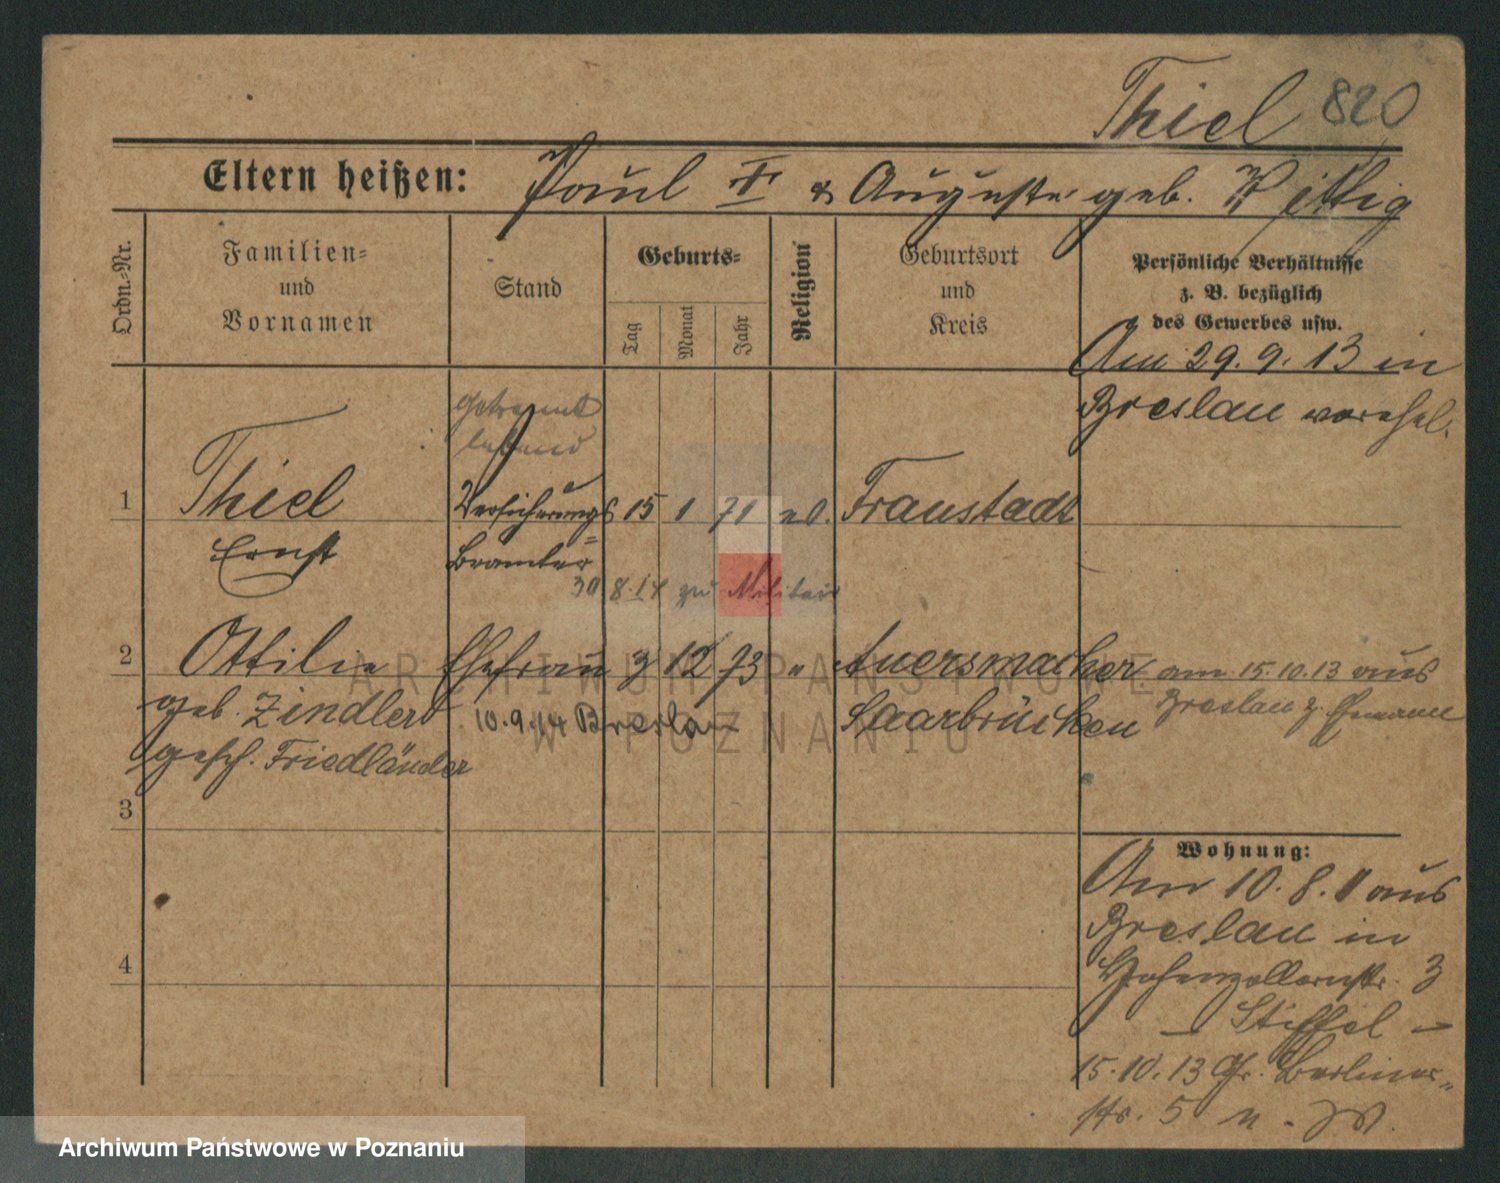 Thiel 820
Eltern heißen: Paul † & Auguste geb. Wittig
Ordn.-Nr.
Familien-
und
Vornamen
Stand
Geburts-
Tag
Monat
Jahr
Religion
Geburtsort
und
Kreis
Persönliche Verhältnisse
z. B. bezüglich
des Gewerbes usw.
Am 29.9.13 in
Breslau verehel.
getrennt
lebend
1 Thiel Versicherungs 15 1 71 ev. Fraustadt
Ernst Beamter
30 8.14 zu Militair
2 Ottilie Ehefrau 9 12 73 " Auersmacher am 15.10.13 aus
geb. Zindler 10.9.14 Breslau Saarbrücken Breslau z. Ehemann
gesch. Friedländer
3
Wohnung:
Am 10.8.11 aus
Breslau in
4 Hohenzollernstr. 3
– Stiffel –
15.10.13 Gr. Berliner-
str. 5 n. W.
ARCHIWUM PAŃSTWOWE
W POZNANIU
Archiwum Państwowe w Poznaniu